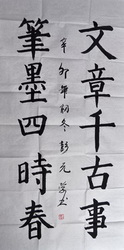 文章千古事
筆墨四時春
辛卯年初冬彭元